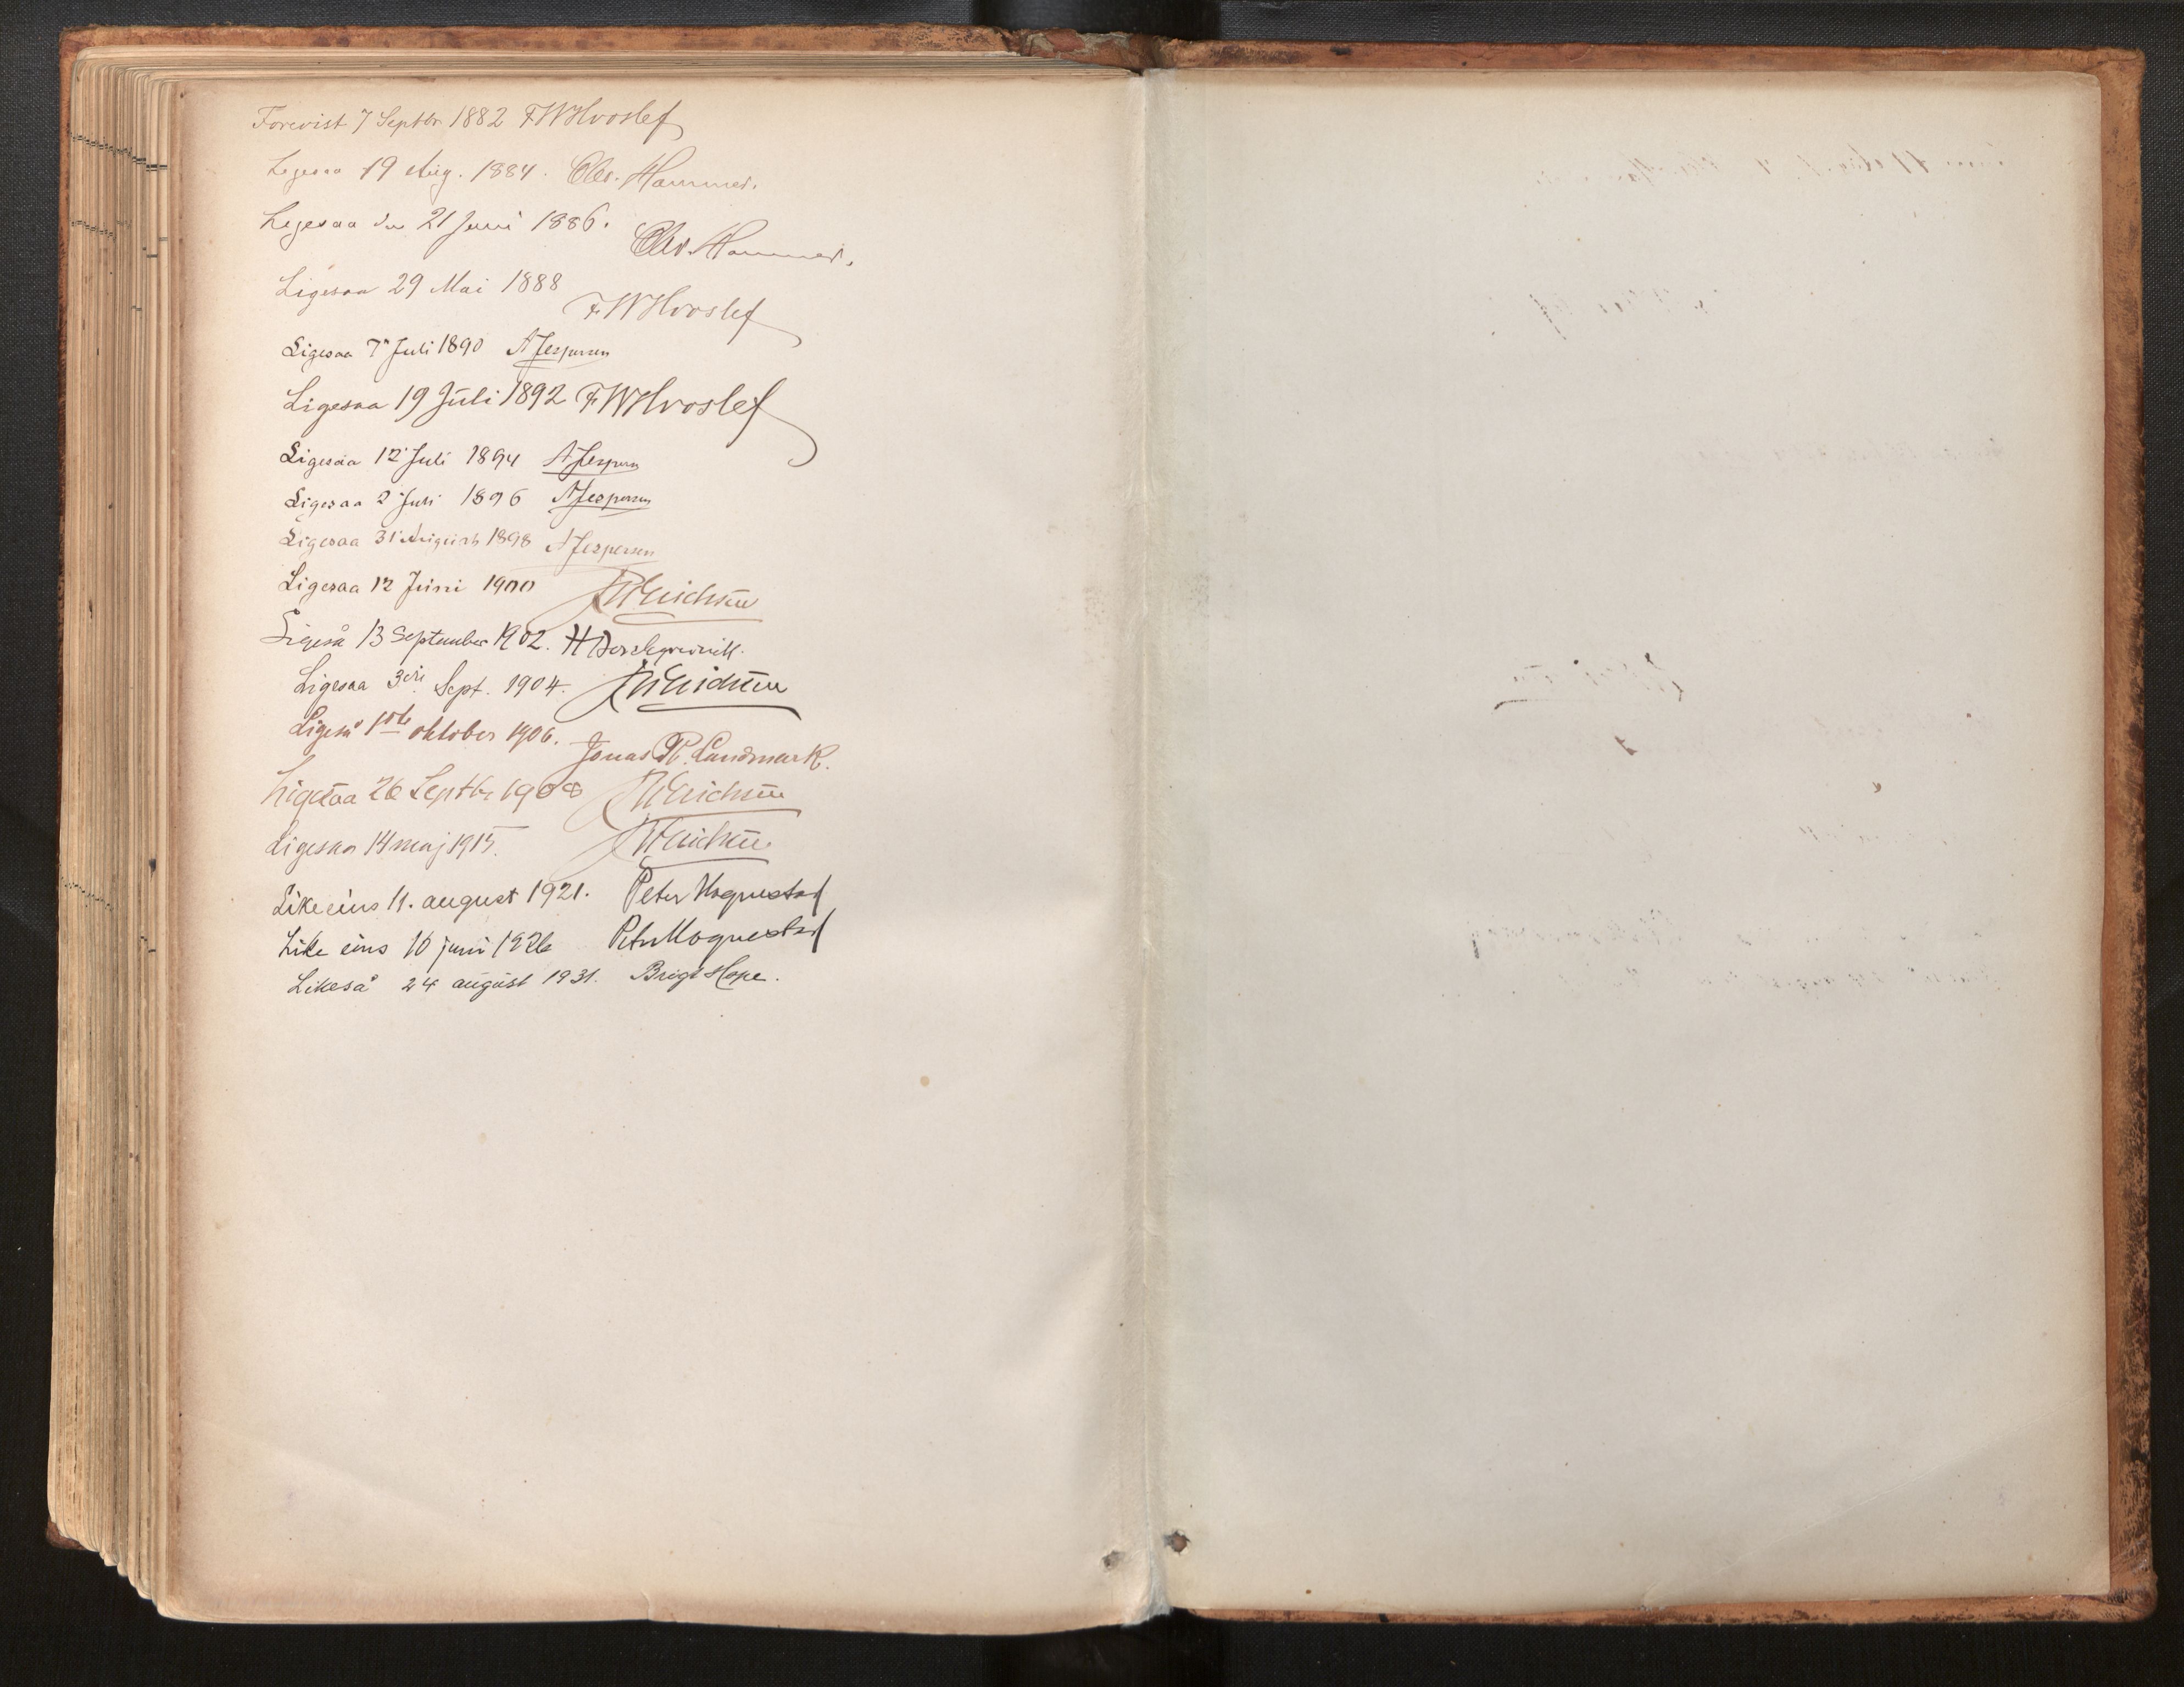 Forevist 7 Septbr 1882 FWHvoslef
Ligesaa 19 Aug. 1884. Chr. Hammer.
Ligesaa den 21 Juni 1886.
Chr. Hammer.
Ligesaa 29 Mai 1888
FWHvoslef
Ligesaa 7 Juli 1890 AJespersen
Ligesaa 19 Juli 1892 FWHvoslef
Ligesaa 12 Juli 1894 AJespersen
Ligesaa 2 Juli 1896 AJespersen
Ligesaa 31 August 1898 AJespersen
Ligesaa 12 Juni 1900
Ligeså 13 September 1902.
Ligesaa Sept. 1904.
Ligeså 1ste oktober 1906.
Jonas R. Landmark.
Ligesaa 26 Septbr 1908
Ligesaa 14 maj 1915.
Likeeins 11. august 1921. Peter Hognestad
Like eins 10 juni 1926 Peter Hognestad
Likeså 24 august 1931. Brigt Hope.